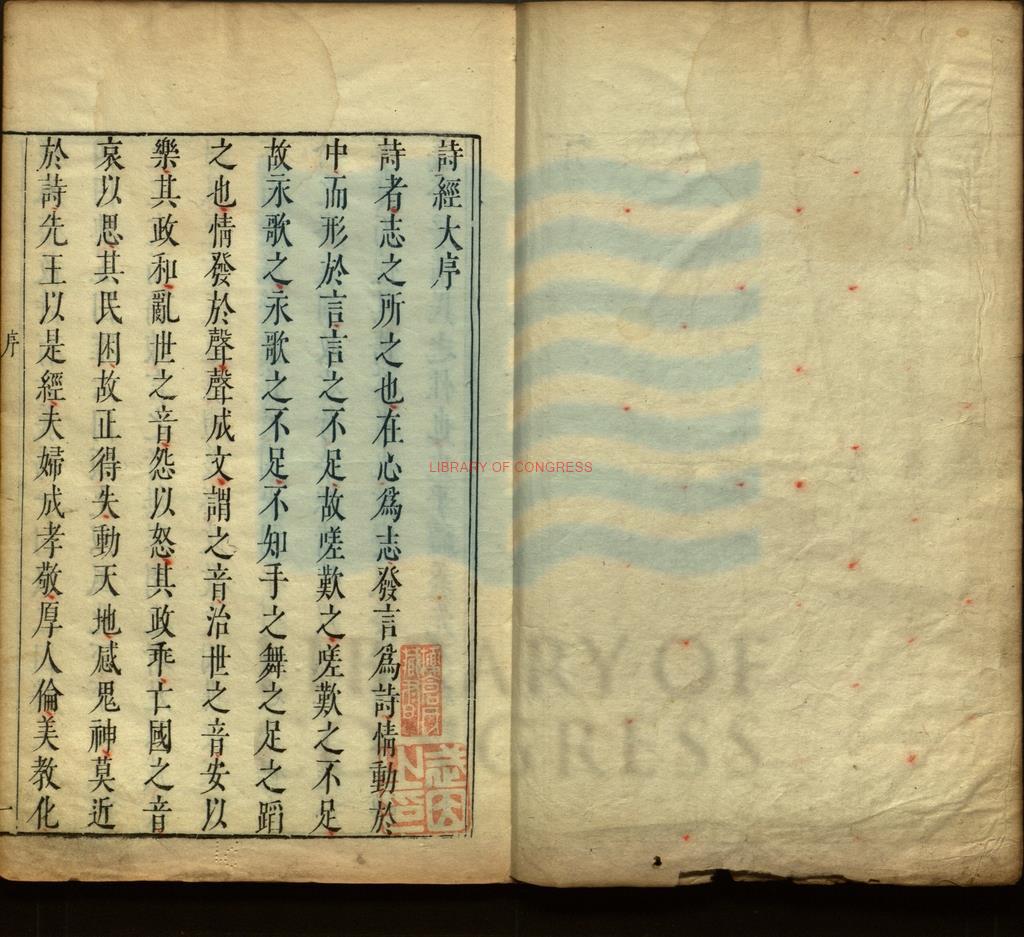 詩經大序
詩者志之所之也在心爲志發言爲詩情動於
中而形於言言之不足故嗟歎之嗟歎之不足
故永歌之永歌之不足不知手之舞之足之蹈
之也情發於聲聲成文謂之音治世之音安以
樂其政和亂世之音怨以怒其政乖亡國之音
哀以思其民困故正得失動天地感鬼神莫近
於詩先王以是經夫婦成孝敬厚人倫美教化
序
一
LIBRARY OF CONGRESS
LIBRARY OF
CONGRESS